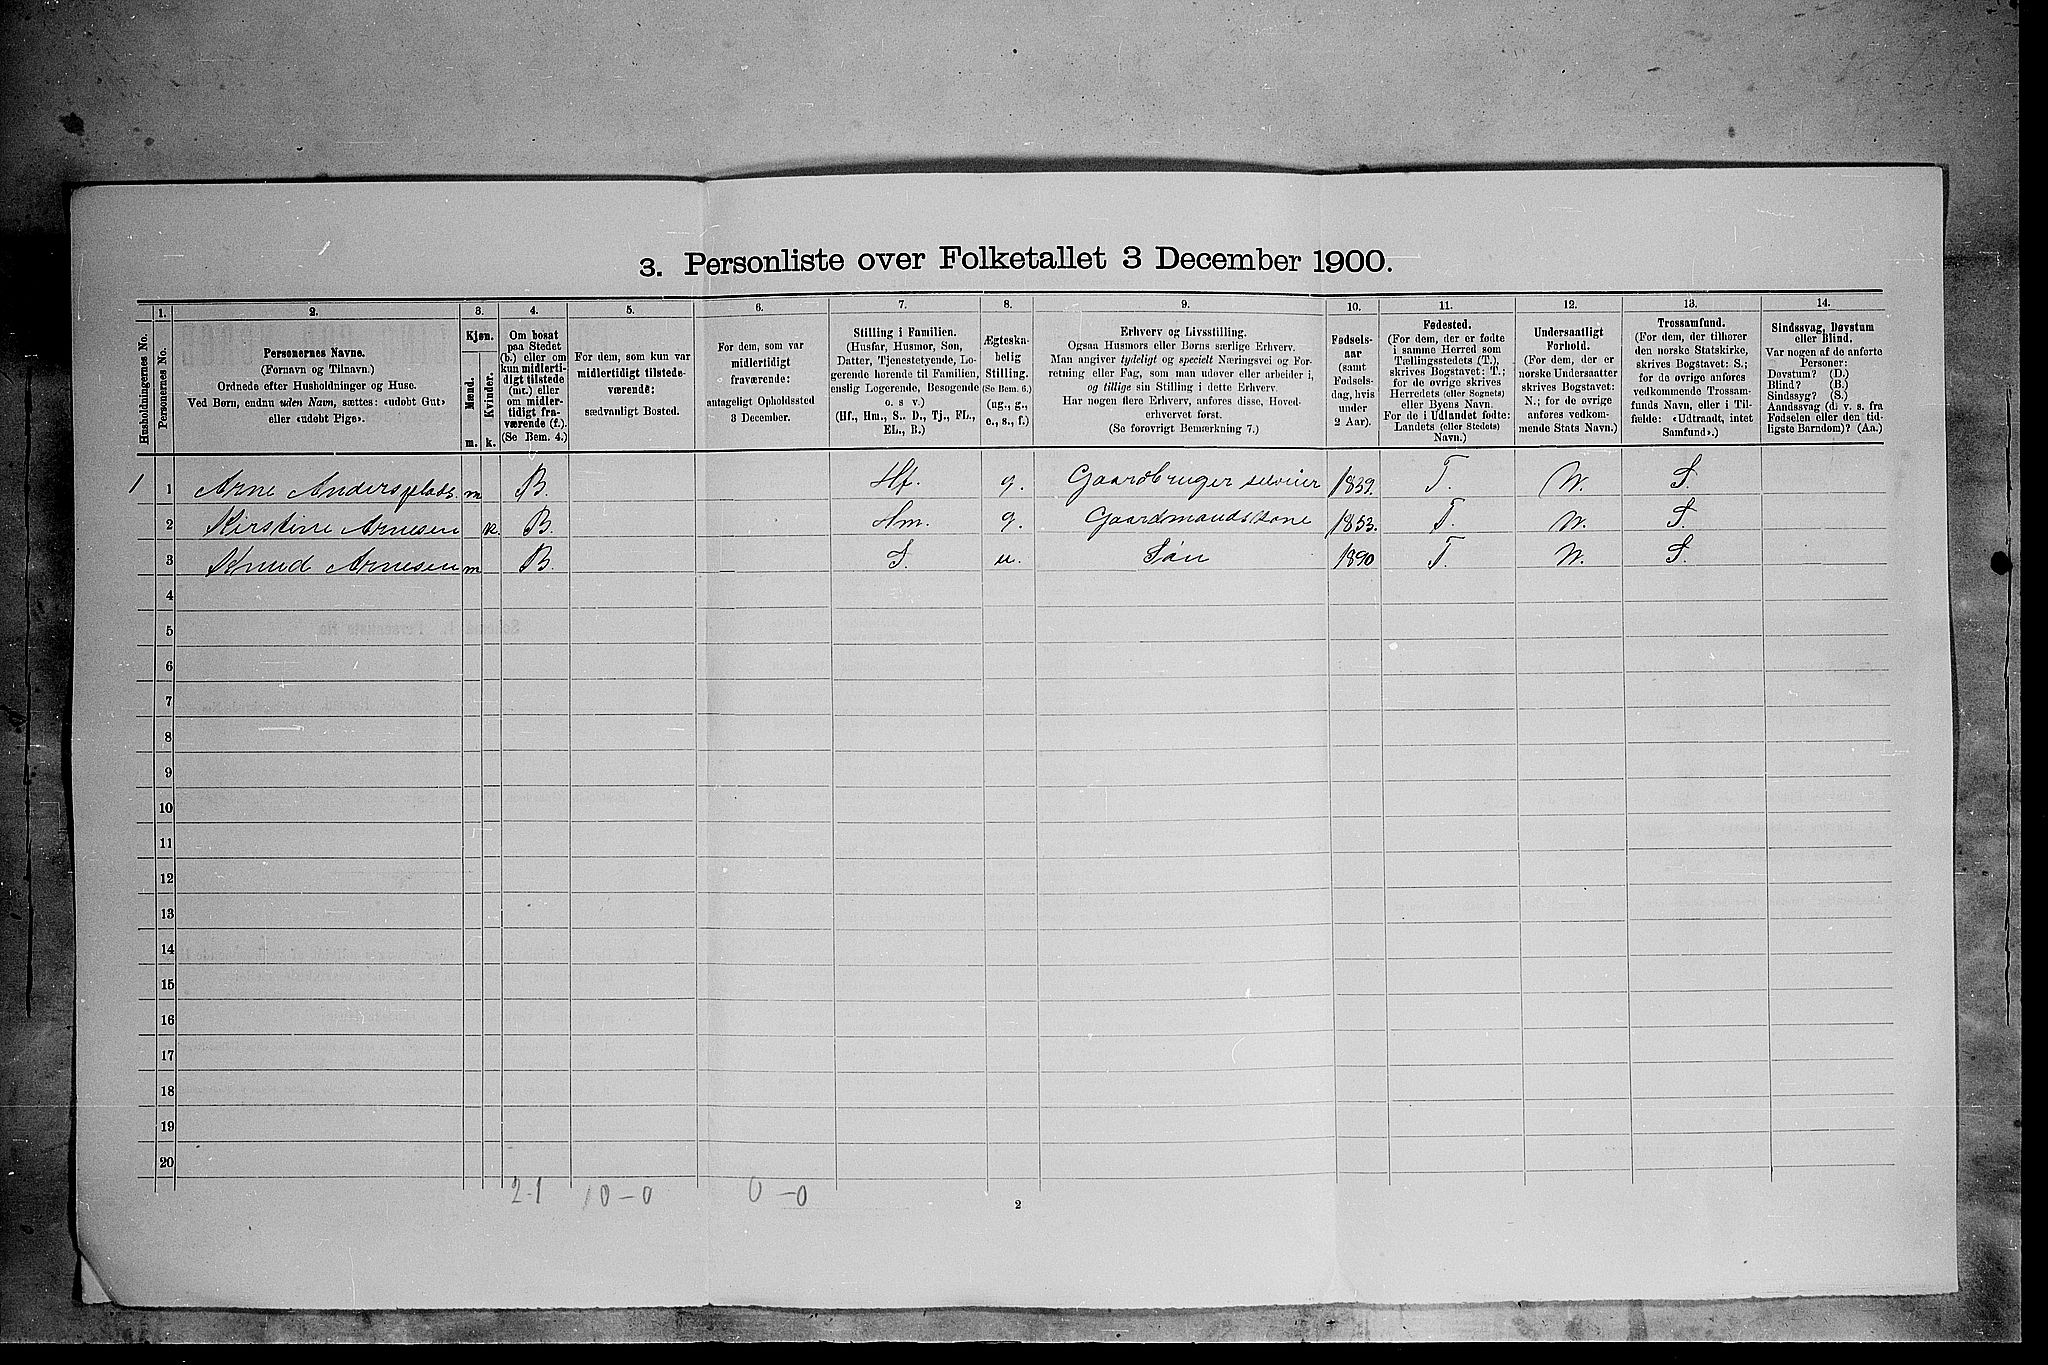 3. Personliste over Folketallet 3 December 1900.
Husholdningernes No.
1.
Personernes No.
2.
Personernes Navne.
(Fornavn og Tilnavn.)
Ordnede efter Husholdninger og Huse.
Ved Børn, endnu uden Navn, sættes: «udøbt Gut»
eller «udøbt Pige».
3.
Kjøn.
Mænd.
Kvinder.
m. k.
4.
Om bosat
paa Stedet
(b.) eller om
kun midlerti-
digt tilstede
(mt.) eller
om midler-
tidigt fra-
værende (f.).
(Se Bem. 4.)
5.
For dem, som kun var
midlertidigt tilstede-
værende:
sædvanligt Bosted.
6.
For dem, som var
midlertidigt
fraværende:
antageligt Opholdssted
3 December.
7.
Stilling i Familien.
(Husfar, Husmor, Søn,
Datter, Tjenestetyende, Lo-
gerende hørende til Familien,
enslig Logerende, Besøgende
o. s v.)
(Hf., Hm., S.. D., Tj., FL.,
EL., B.)
8.
Ægteska-
belig
Stilling.
(Se Bem. 6.)
(ug., g.,
e., s., f.)
9.
Erhverv og Livsstilling.
Ogsaa Husmors eller Børns særlige Erhverv.
Man angiver tydeligt og specielt Næringsvei og For-
retning eller Fag, som man udøver eller arbeider i,
og tillige sin Stilling i dette Erhverv.
Har nogen flere Erhverv, anføres disse, Hoved-
erhvervet først.
(Se forøvrigt Bemærkning 7.)
10.
Fødsels-
aar
(samt
Fødsels-
dag, hvis
under
2 Aar).
11.
Fødested.
(For dem, der er fødte
i samme Herred som
Tællingsstedets (T.),
skrives Bogstavet: T.;
for de øvrige skrives
Herredets (eller Sognets)
eller Byens Navn.
For de i Udlandet fødte:
Landets (eller Stedets)
Navn.)
12.
Undersaatligt
Forhold.
(For dem, der er
norske Undersaatter
skrives Bogstavet:
N.; for de øvrige
anføres vedkom-
mende Stats Navn.)
13.
Trossamfund.
(For dem, der tilhører
den norske Statskirke,
skrives Bogstavet: S.;
for de øvrige anføres
vedkommende Trossam-
funds Navn, eller i Til-
fælde: «Udtraadt, intet
Samfund».)
14.
Sindssvag, Døvstum
eller Blind.
Var nogen af de anførte
Personer:
Døvstum? (D.)
Blind? (B.)
Sindssyg? (S.)
Aandssvag (d. v. s. fra
Fødselen eller den tid-
ligste Barndom)? (Aa.)
1 1 Arne Andersplads. m B. Hf. g. Gaardbruger selveier 1839. T. N. S.
2 Kirstine Arnesen k. B. Hm. g. Gaardmandskone 1853. T. N. S.
3 Knud Arnesen m B. S. u. Søn 1890 T. N. S.
4
5
6
7
8
9
10
11
12
13
14
15
16
17
18
19
20
2-1 10-0 0-0
2